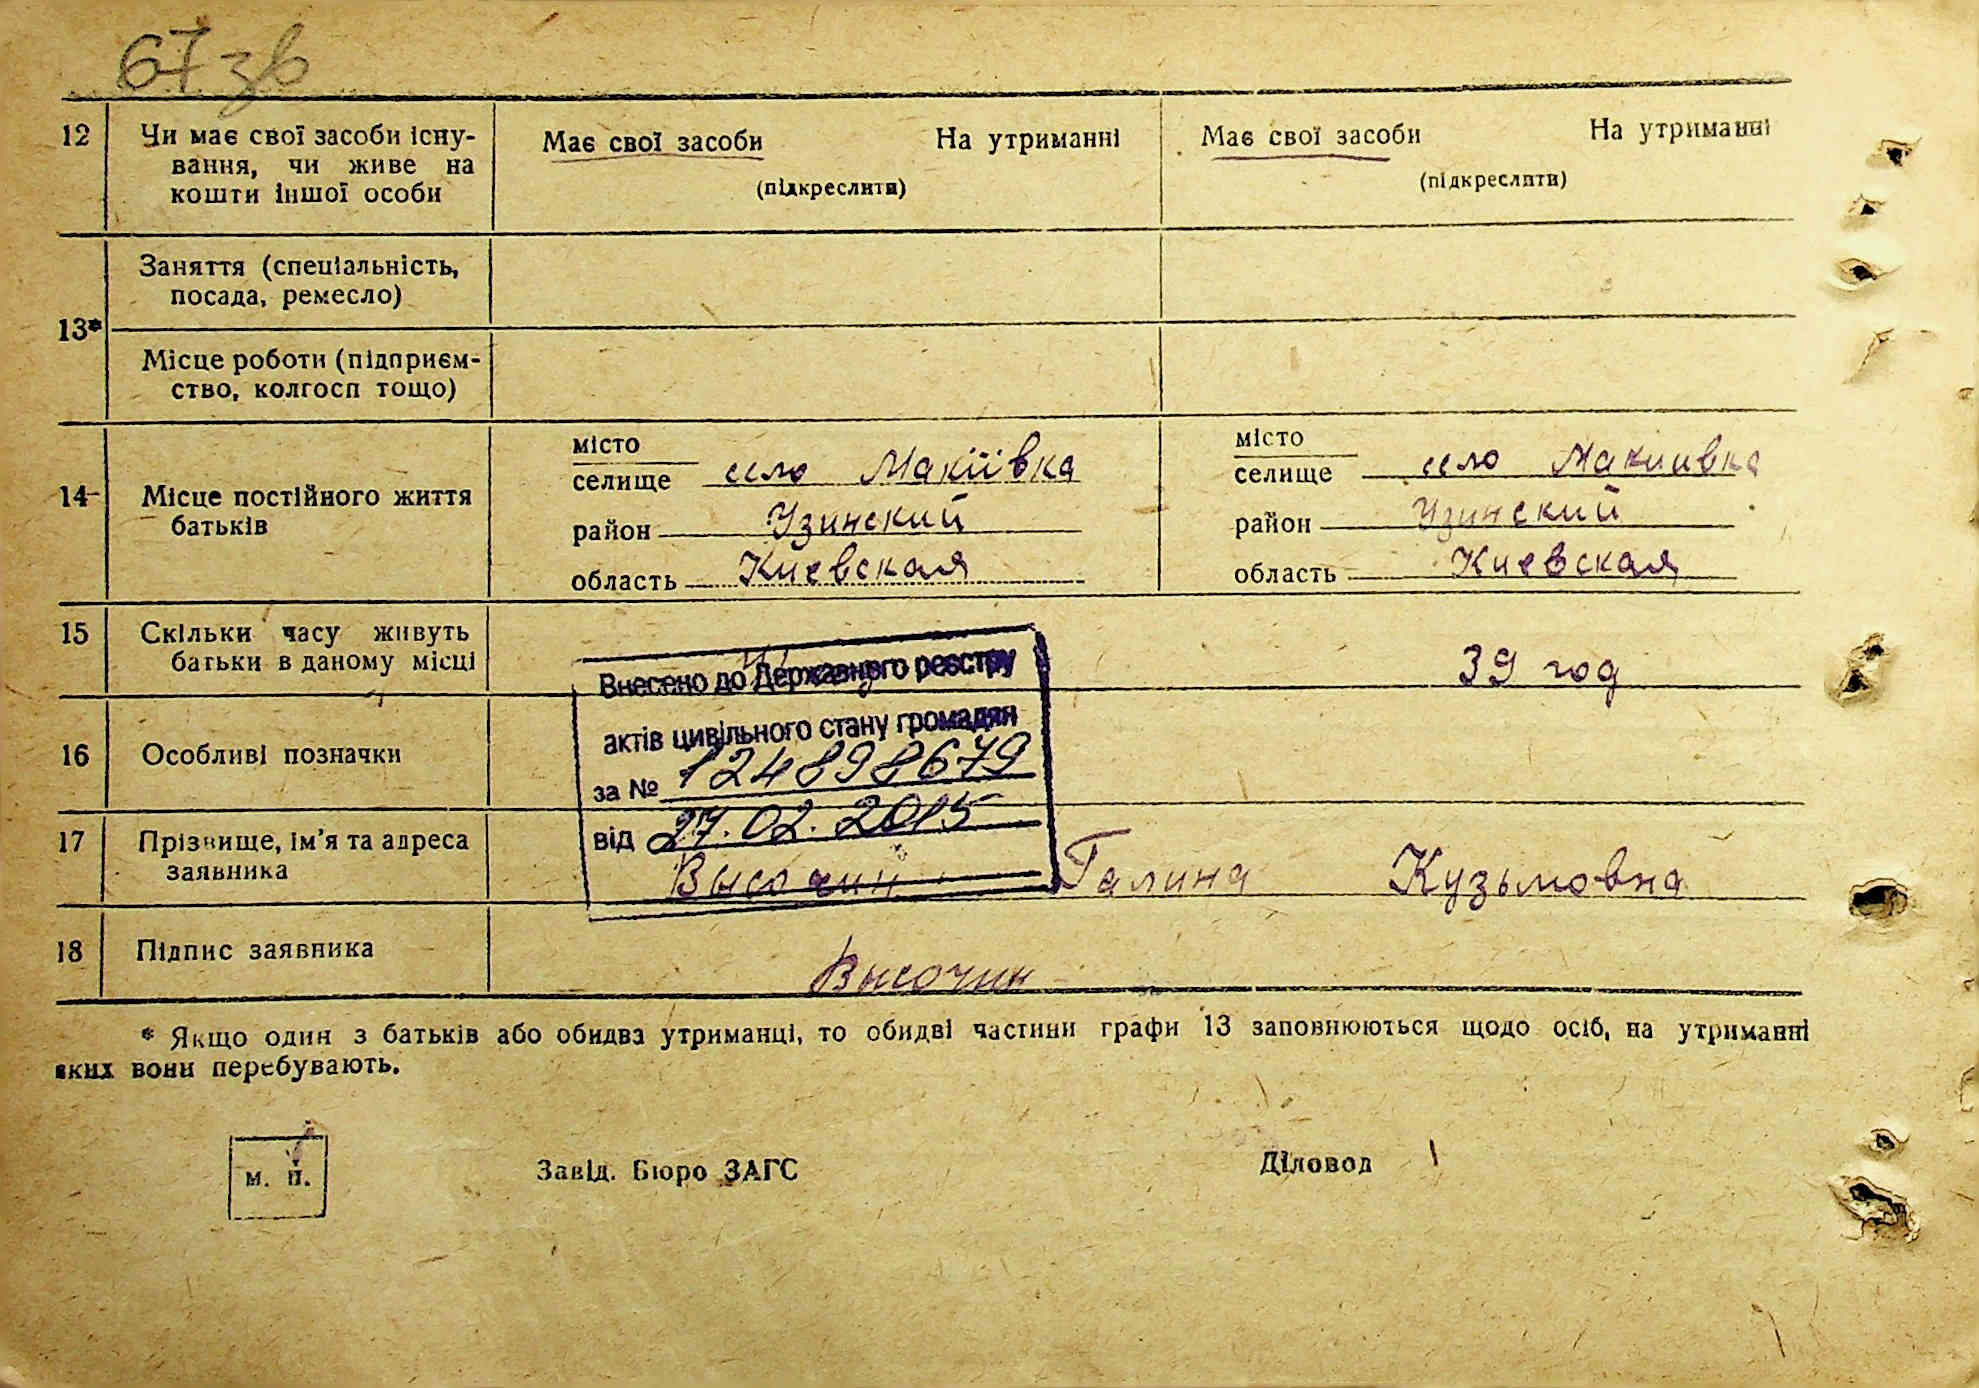 67 зв
12 Чи має свої засоби існу- Має свої засоби На утриманні Має свої засоби На утриманні
вання, чи живе на
кошти іншої особи (підкреслити) (підкреслити)
Заняття (спеціальність,
посада, ремесло)
13*
Місце роботи (підприєм-
ство, колгосп тощо)
місто місто
селище село Макіївка селище село Макиивка
14 Місце постійного життя
батьків район Узинский район Узинский
область Киевская область Киевская
15 Скільки часу живуть
батьки в даному місці 39 год
Внесено до Державного реєстру
актів цивільного стану громадян
за № 124898679
від 27.02.2015
16 Особливі позначки
17 Прізвище, ім'я та адреса
заявника Высочин Галина Кузьмовна
18 Підпис заявника Высочин
* Якщо один з батьків або обидва утриманці, то обидві частини графи 13 заповнюються щодо осіб, на утриманні
яких вони перебувають.
м. п. Завід. Бюро ЗАГС Діловод